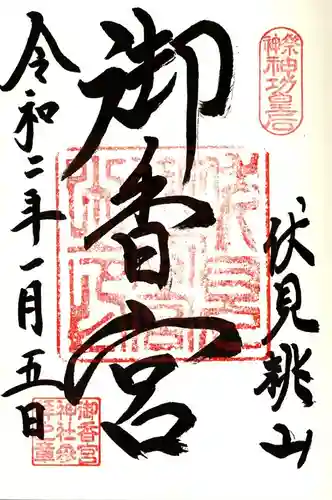 祭神 神功皇后
伏見桃山
御香宮
令和二年一月五日
御香宮
神社参
拝之章